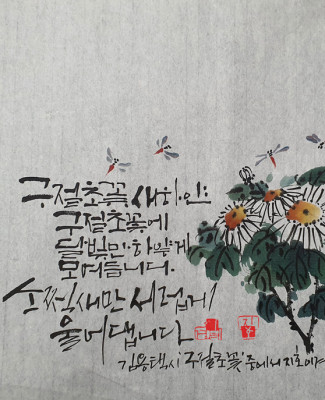 구절초꽃 새하얀
구절초꽃에
달빛만 하얗게
모여듭니다.
소쩍새만 서럽게
울어댑니다
김용택 시 '구절초꽃' 중에서